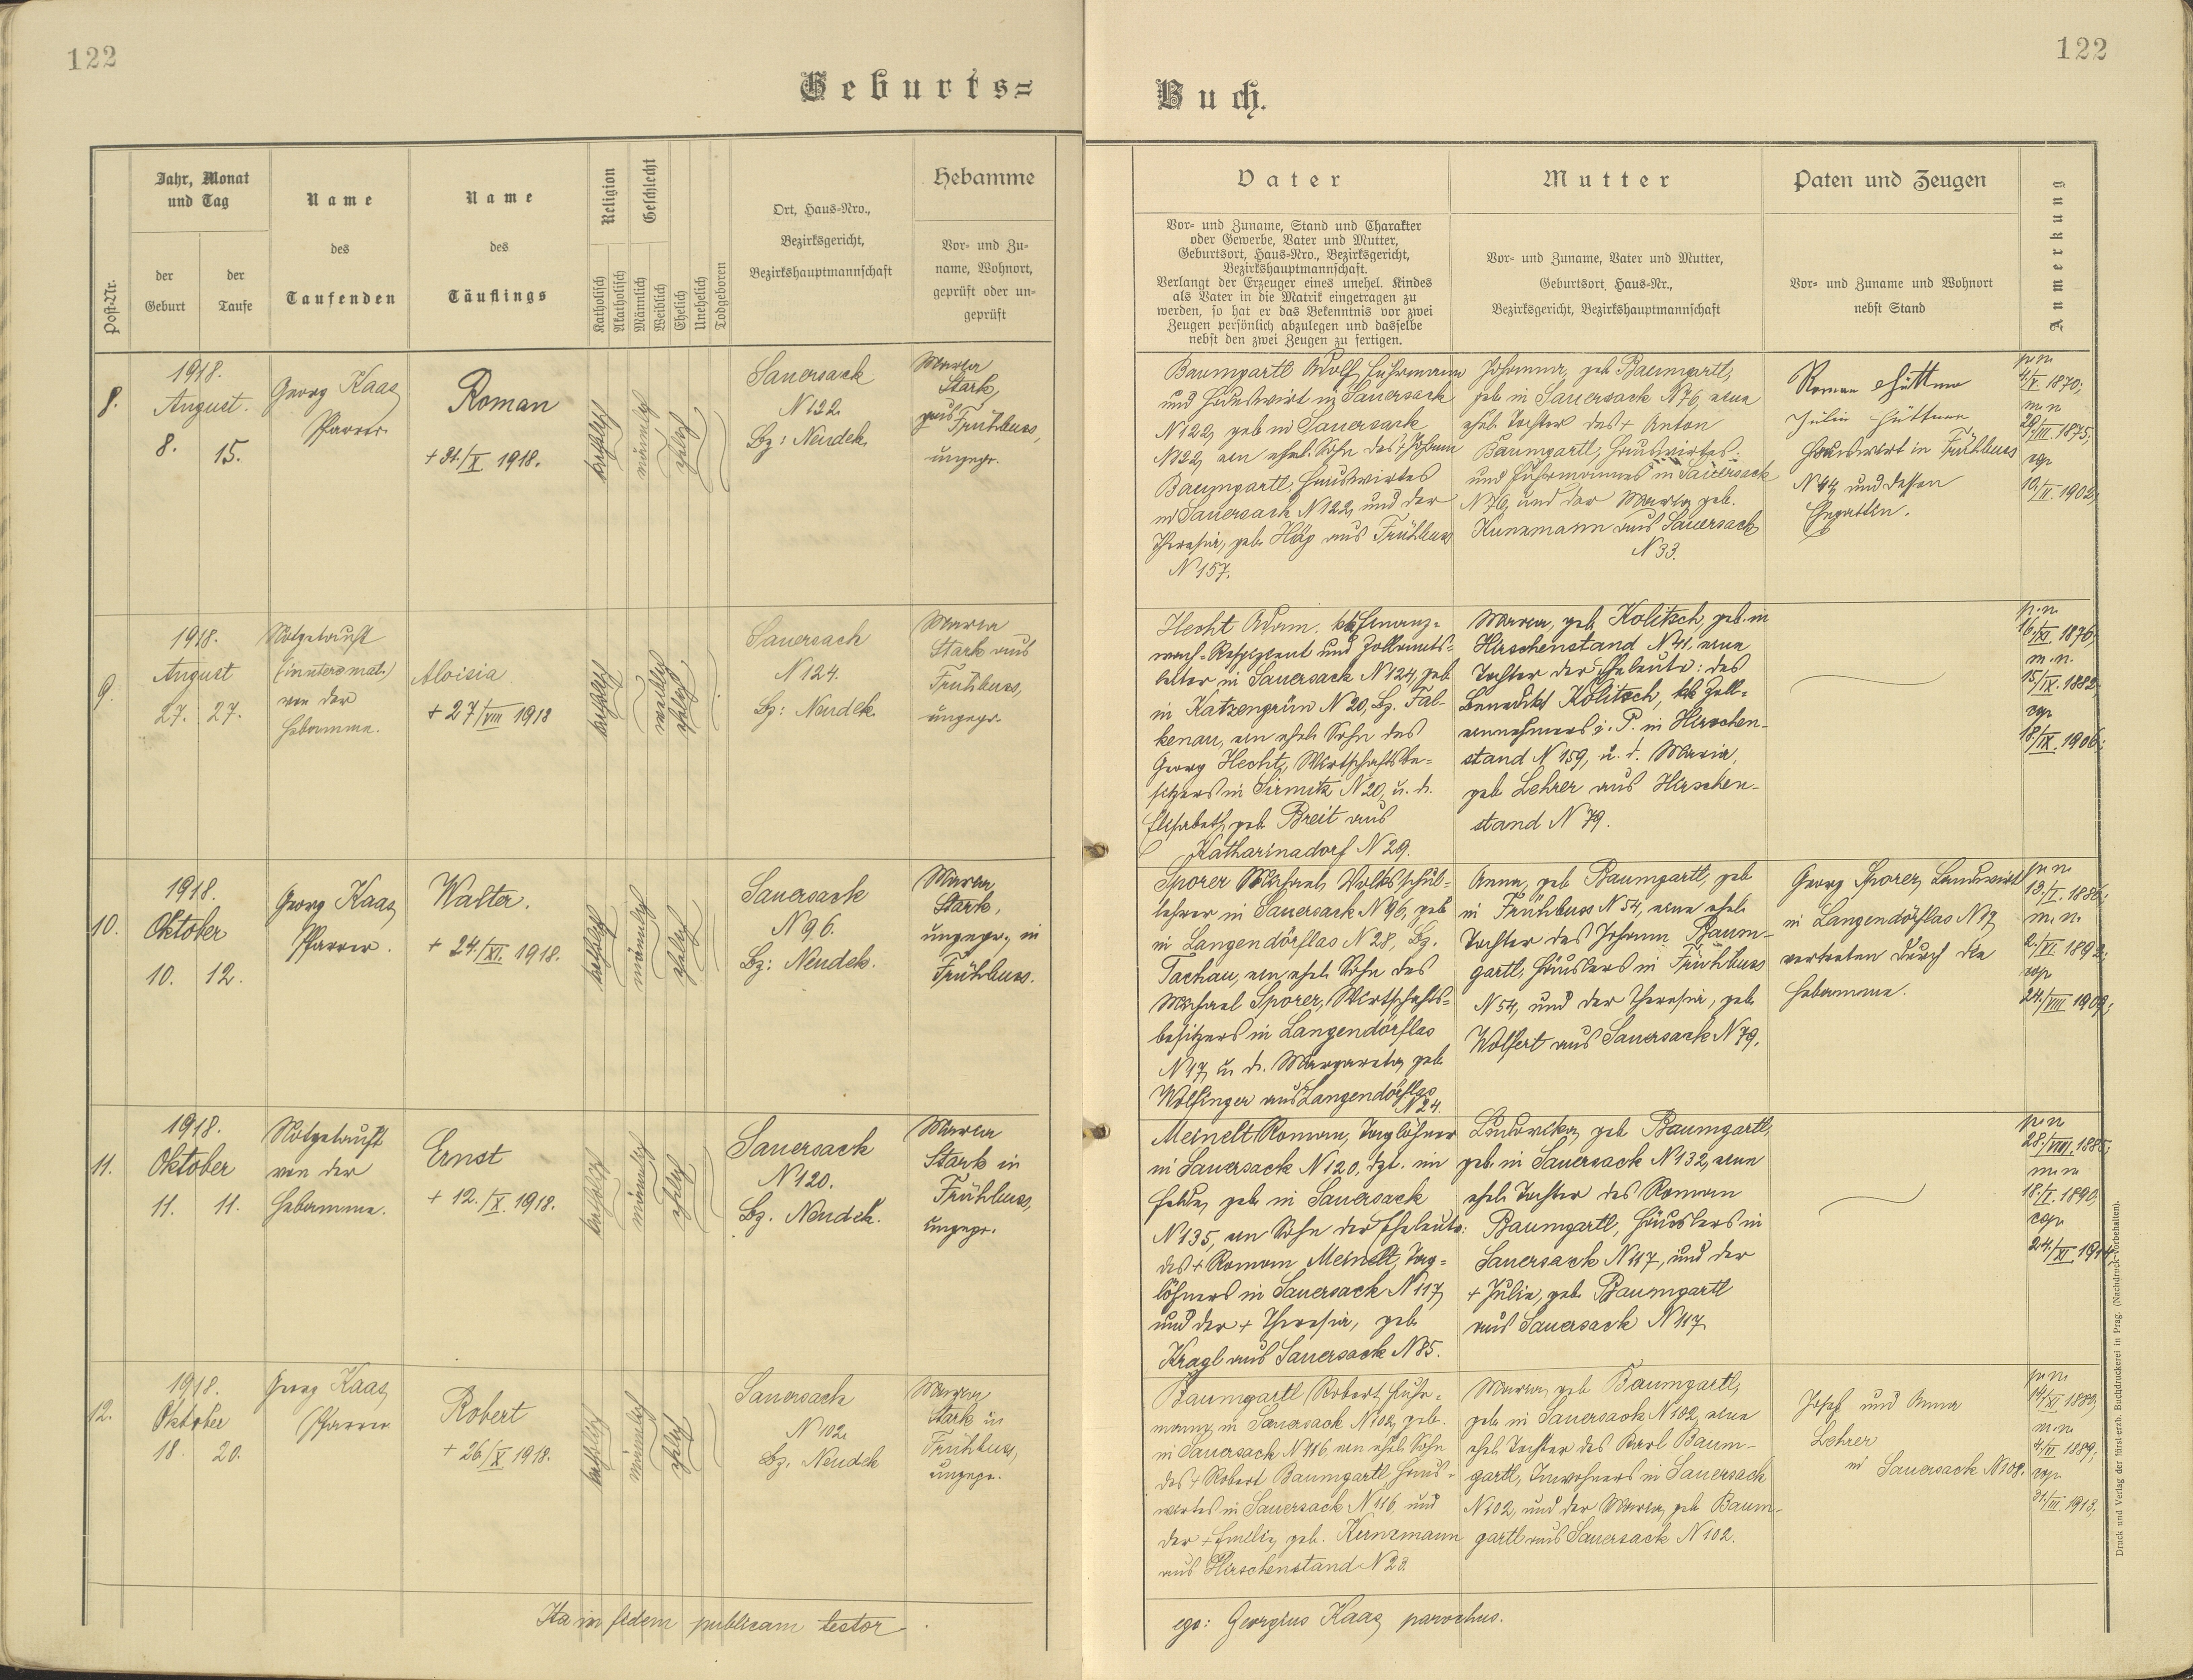 122
Geburts=
Jahr, Monat
und Tag
Name
des
Taufenden
Name
des
Täuflings
Religion
Geschlecht
Ort, Haus-Nro.,
Bezirksgericht,
Bezirkshauptmannschaft
Hebamme
Vor- und Zu-
name, Wohnort,
geprüft oder un-
geprüft
Post-Nr.
der
Geburt
der
Taufe
Katholisch
Akatholisch
Männlich
Weiblich
Ehelich
Unehelich
Todgeboren
8.
1918.
August.
8. 15.
Georg Kaas
Pfarrer.
Roman
+ 31./X 1918.
katholisch
männlich
ehelich
Sauersack
N 122.
Bz: Neudek.
Maria
Stark,
aus Frühbuss,
ungepr.
9.
1918.
August
27. 27.
Notgetauft
(in utero mat.)
von der
Hebamme.
Aloisia
+ 27/VIII 1918
katholisch
weiblich
ehelich
Sauersack
N 124.
Bz: Neudek.
Maria
Stark aus
Frühbuss,
ungepr.
10.
1918.
Oktober
10. 12.
Georg Kaas
Pfarrer.
Walter.
+ 24./XI. 1918.
katholisch
männlich
ehelich
Sauersack
N 96.
Bz: Neudek.
Maria
Stark,
ungepr., in
Frühbuss.
11.
1918.
Oktober
11. 11.
Notgetauft
von der
Hebamme.
Ernst
+ 12./X. 1918.
katholisch
männlich
ehelich
Sauersack
N 120.
Bz. Neudek.
Maria
Stark in
Frühbuss,
ungepr.
12.
1918.
Oktober
18. 20.
Georg Kaas
Pfarrer
Robert
+ 26/X 1918.
katholisch
männlich
ehelich
Sauersack
N 102.
Bz. Neudek
Maria
Stark in
Frühbuss,
ungepr.
Ita in fidem publicam testor
122
Buch.
Vater
Vor- und Zuname, Stand und Charakter
oder Gewerbe, Vater und Mutter,
Geburtsort, Haus-Nro., Bezirksgericht,
Bezirkshauptmannschaft.
Verlangt der Erzeuger eines unehel. Kindes
als Vater in die Matrik eingetragen zu
werden, so hat er das Bekenntnis vor zwei
Zeugen persönlich abzulegen und dasselbe
nebst den zwei Zeugen zu fertigen.
Mutter
Vor- und Zuname, Vater und Mutter,
Geburtsort, Haus-Nr.,
Bezirksgericht, Bezirkshauptmannschaft
Paten und Zeugen
Vor- und Zuname und Wohnort
nebst Stand
Anmerkung
Baumgartl Adolf, Fuhrmann
und Hauswirt in Sauersack
N 122, geb in Sauersack
N 122, ein ehel. Sohn des + Johann
Baumgartl, Hauswirtes
in Sauersack N 122, und der
Theresia, geb. Häp aus Frühbuss
N 157.
Johanna, geb Baumgartl,
geb in Sauersack N 76, eine
ehel Tochter des + Anton
Baumgartl, Hauswirtes
und Fuhrmannes in Sauersack
N 76, und der Maria geb.
Kunzmann aus Sauersack
N 33.
Roman Hüttner
Julie Hüttner
Hauswirt in Frühbuss
N 44, und dessen
Ehegattin.
p. n.
4/V. 1870;
m. n
29/III. 1875;
cop
10/II. 1902;
Hecht Adam, kk Finanz-
wach-Respizient und Zollamts-
leiter in Sauersack N 124, geb
in Katzengrün N 20, Bz. Fal-
kenau, ein ehel. Sohn des
Georg Hecht, Wirtschaftsbe-
sitzers in Sirmitz N 20, u. d.
Elisabeth, geb Breit aus
Katharinadorf N 29.
Maria, geb Kolitsch, geb. in
Hirschenstand N 41, eine
Tochter der Eheleute: des
Benedikt Kolitsch, kk Zoll-
einnehmers i. P. in Hirschen-
stand N 159, u. d. Maria,
geb Lehrer aus Hirschen-
stand N 79.
p. n.
16/XI. 1876;
m. n.
15/IX. 1882;
cop
18/IX. 1906;
Sporer Michael, Volksschul-
lehrer in Sauersack N 96, geb
in Langendörflas N 28, Bz.
Tachau, ein ehel. Sohn des
Michael Sporer, Wirtschafts-
besitzers in Langendörflas
N 17, u. d. Margareta, geb
Wolfinger aus Langendörflas
N 24.
Anna, geb Baumgartl, geb
in Frühbuss N 54, eine ehel.
Tochter des Johann Baum-
gartl, Häuslers in Frühbuss
N 54, und der Theresia, geb
Wolfert aus Sauersack N 79.
Georg Sporer, Landwirt
in Langendörflas N 17,
vertreten durch die
Hebamme.
p. n
13./I. 1886;
m. n.
2./VI. 1892;
cop
24./VIII 1909;
Meinelt Roman, Taglöhner
in Sauersack N 120, dzt. im
Felde, geb in Sauersack
N 135, ein Sohn der Eheleute:
des + Roman Meinelt, Tag-
löhners in Sauersack N 117,
und der + Theresia, geb
Kragl aus Sauersack N 85.
Ludowika, geb Baumgartl,
geb. in Sauersack N 132, eine
ehel. Tochter des Roman
Baumgartl, Häuslers in
Sauersack N 117, und der
+ Julie, geb. Baumgartl
aus Sauersack N 117.
p. n
28./VIII. 1885;
m. n
18./I. 1890;
cop
24./XI 1914;
Baumgartl Robert, Fuhr-
mann in Sauersack N 102, geb.
in Sauersack N 116, ein ehel. Sohn
des + Robert Baumgartl, Haus-
wirtes in Sauersack N 116, und
der + Emilie, geb. Kunzmann
aus Hirschenstand N 23.
Maria, geb Baumgartl,
geb in Sauersack N 102, eine
ehel. Tochter des Karl Baum-
gartl, Inwohners in Sauersack
N 102, und der Maria, geb Baum-
gartl aus Sauersack N 102.
Josef und Anna
Lehrer
in Sauersack N 108.
p. n
19/XI 1889;
m. n.
4/VI 1889;
cop
31/III. 1913;
ego: Georgius Kaas, parochus.
Druck und Verlag der fürst-erzb. Buchdruckerei in Prag. (Nachdruck vorbehalten).